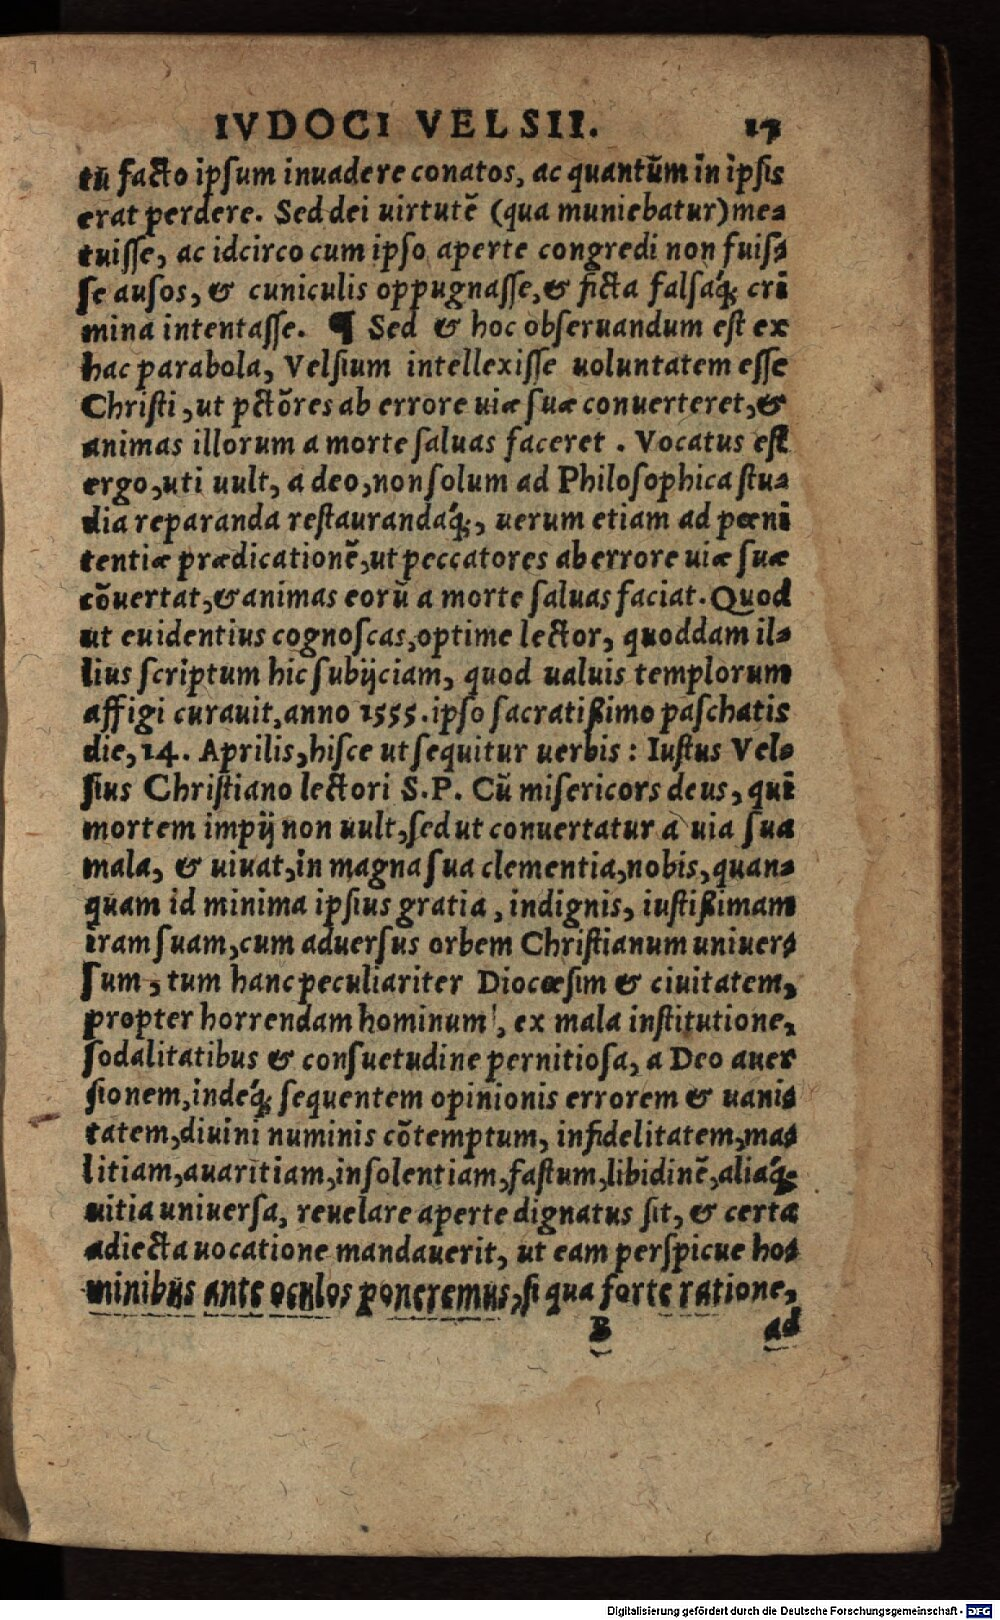 IVDOCI VELSII. 17
tū facto ipsum inuadere conatos, ac quantūm in ipsis
erat perdere. Sed dei uirtutē (qua muniebatur) me-
tuisse, ac idcirco cum ipso aperte congredi non fuis-
se ausos, & cuniculis oppugnasse, & ficta falsaq́; cri
mina intentasse. ¶ Sed & hoc obseruandum est ex
hac parabola, Velsium intellexisse uoluntatem esse
Christi, ut pctōres ab errore uiæ suæ conuerteret, &
animas illorum a morte saluas faceret. Vocatus est
ergo, uti uult, a deo, non solum ad Philosophica stu-
dia reparanda restaurandaq́;, uerum etiam ad pœni
tentiæ prædicationē, ut peccatores ab errore uiæ suæ
cōuertat, & animas eorū a morte saluas faciat. Quod
ut euidentius cognoscas, optime lector, quoddam il-
lius scriptum hic subijciam, quod ualuis templorum
affigi curauit, anno 1555. ipso sacratißimo paschatis
die, 14. Aprilis, hisce ut sequitur uerbis: Iustus Vel-
sius Christiano lectori S.P. Cū misericors deus, qui
mortem impij non uult, sed ut conuertatur a uia sua
mala, & uiuat, in magna sua clementia, nobis, quan-
quam id minima ipsius gratia, indignis, iustißimam
iram suam, cum aduersus orbem Christianum uniuer-
sum, tum hanc peculiariter Diocœsim & ciuitatem,
propter horrendam hominum, ex mala institutione,
sodalitatibus & consuetudine pernitiosa, a Deo auer
sionem, indeq́; sequentem opinionis errorem & uani-
tatem, diuini numinis cōtemptum, infidelitatem, ma-
litiam, auaritiam, insolentiam, fastum, libidinē, aliaq́;
uitia uniuersa, reuelare aperte dignatus sit, & certa
adiecta uocatione mandauerit, ut eam perspicue ho-
minibus ante oculos poneremus, si qua forte ratione,
B ad
Digitalisierung gefördert durch die Deutsche Forschungsgemeinschaft - DFG